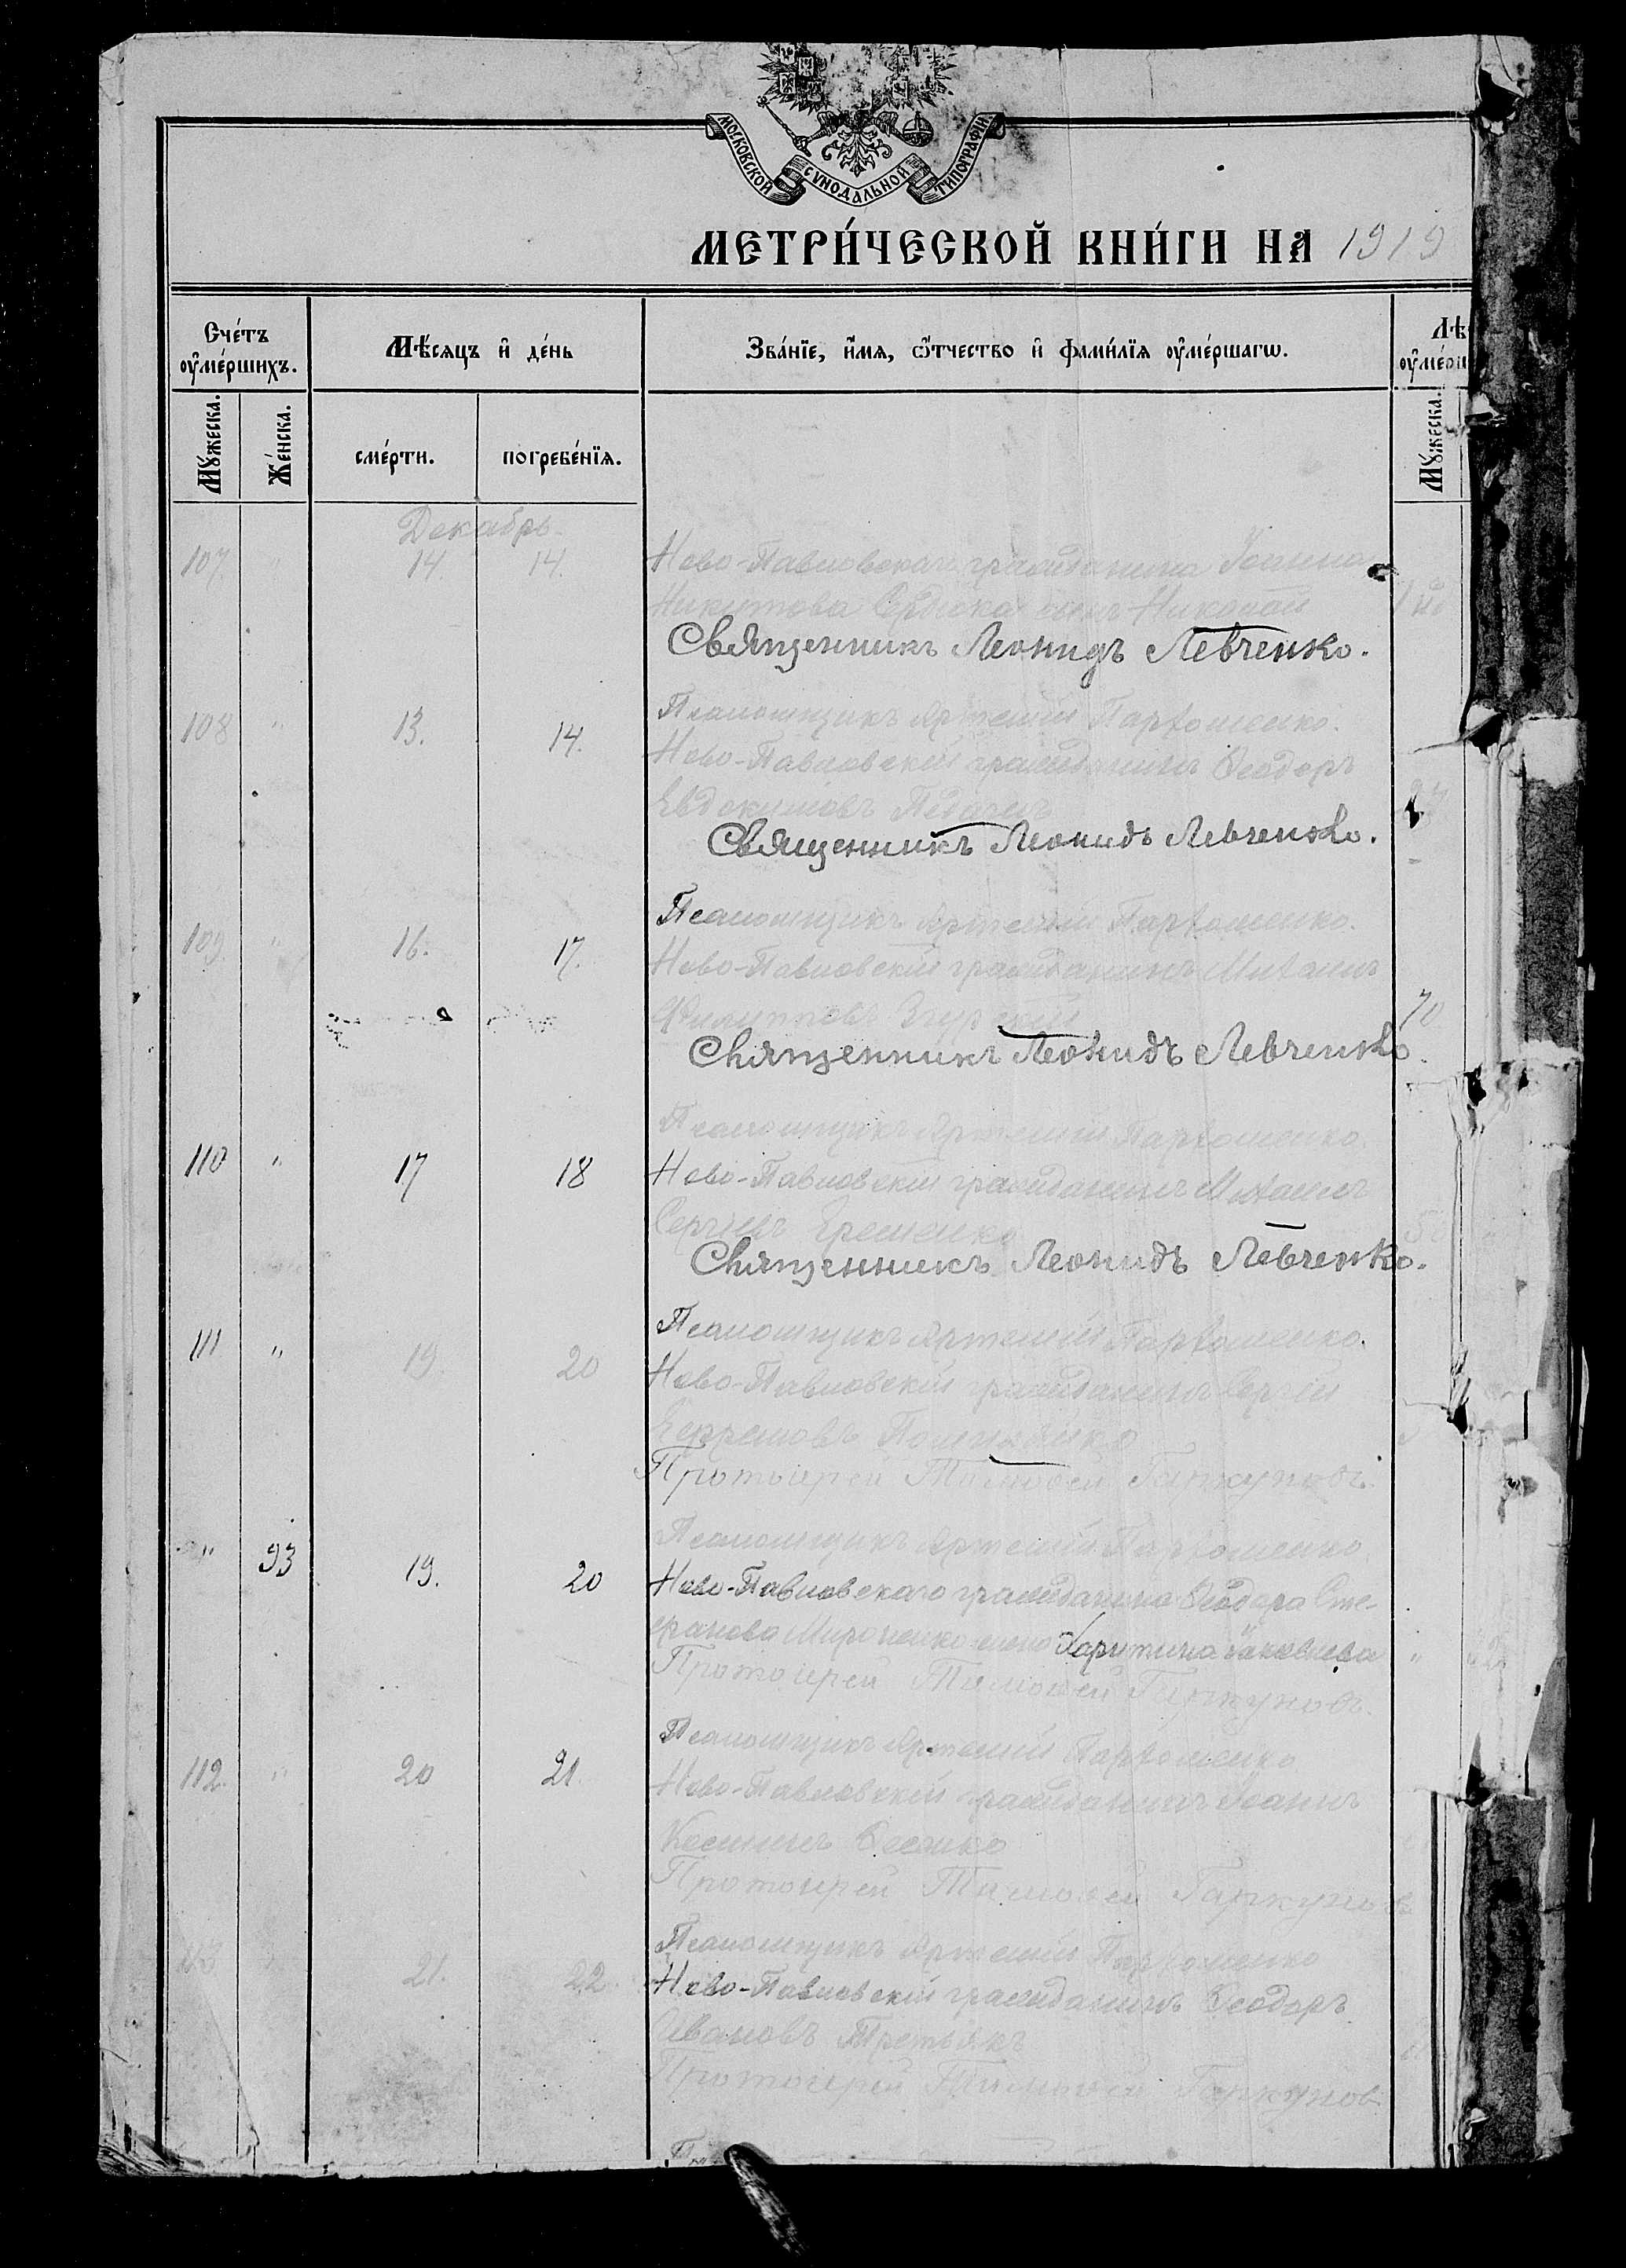 МОСКОВСКОЙ СѴНОДАЛЬНОЙ ТИПОГРАФІИ
МЕТРИ́ЧЕСКОЙ КНИ́ГИ НА 1919
Сче́тъ ᲂу҆ме́ршихъ.
Мѣ́сяцъ и҆ де́нь
Зва́нїе, и҆́мѧ, ѻ҆́тчество и҆ фами́лїѧ ᲂу҆ме́ршагѡ.
Мꙋ́жеска.
Же́нска.
сме́рти.
погребе́нїѧ.
Мꙋ́жеска.
Декабрь.
107. " 14. 14. Ново-Павловскаго гражданина Іоанна
Никитова сынъ Николай
Священникъ Леонидъ Левченко.
Псаломщикъ Артемій Пархоменко.
108 " 13. 14. Ново-Павловскій гражданинъ Ѳеодоръ
Евдокимовъ
Священникъ Леонидъ Левченко.
Псаломщикъ Артемій Пархоменко.
109. " 16. 17. Ново-Павловскій гражданинъ Михаилъ
Филипповъ Згурскій 70
Священникъ Леонидъ Левченко.
Псаломщикъ Артемій Пархоменко.
110 " 17 18 Ново-Павловскій гражданинъ Михаилъ
Сергіевъ Еременко
Священникъ Леонидъ Левченко.
Псаломщикъ Артемій Пархоменко.
111 " 19. 20 Ново-Павловскій гражданинъ Сергій
Ефремовъ
Протоіерей Тимоѳей Гаркуновъ.
Псаломщикъ Артемій Пархоменко
" 93 19. 20 Ново-Павловскаго гражданина Ѳеодора Сте-
фанова Мироненко жена Харитина Іаковлева "
Протоіерей Тимоѳей Гаркуновъ.
Псаломщикъ Артемій Пархоменко
112. " 20 21. Ново-Павловскій гражданинъ Іоаннъ
Косминъ
Протоіерей Тимоѳей Гаркуновъ
Псаломщикъ Артемій Пархоменко
113 21. 22. Ново-Павловскій гражданинъ Ѳеодоръ
Ивановъ Третьякъ
Протоіерей Тимоѳей Гаркуновъ